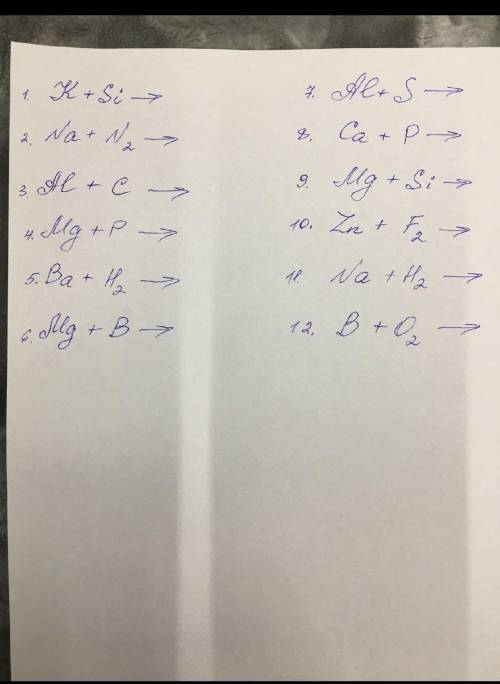 1. K + Si →
2. Na + N₂ →
3. Al + C →
4. Mg + P →
5. Ba + H₂ →
6. Mg + B →
7. Al + S →
8. Ca + P →
9. Mg + Si →
10. Zn + F₂ →
11. Na + H₂ →
12. B + O₂ →